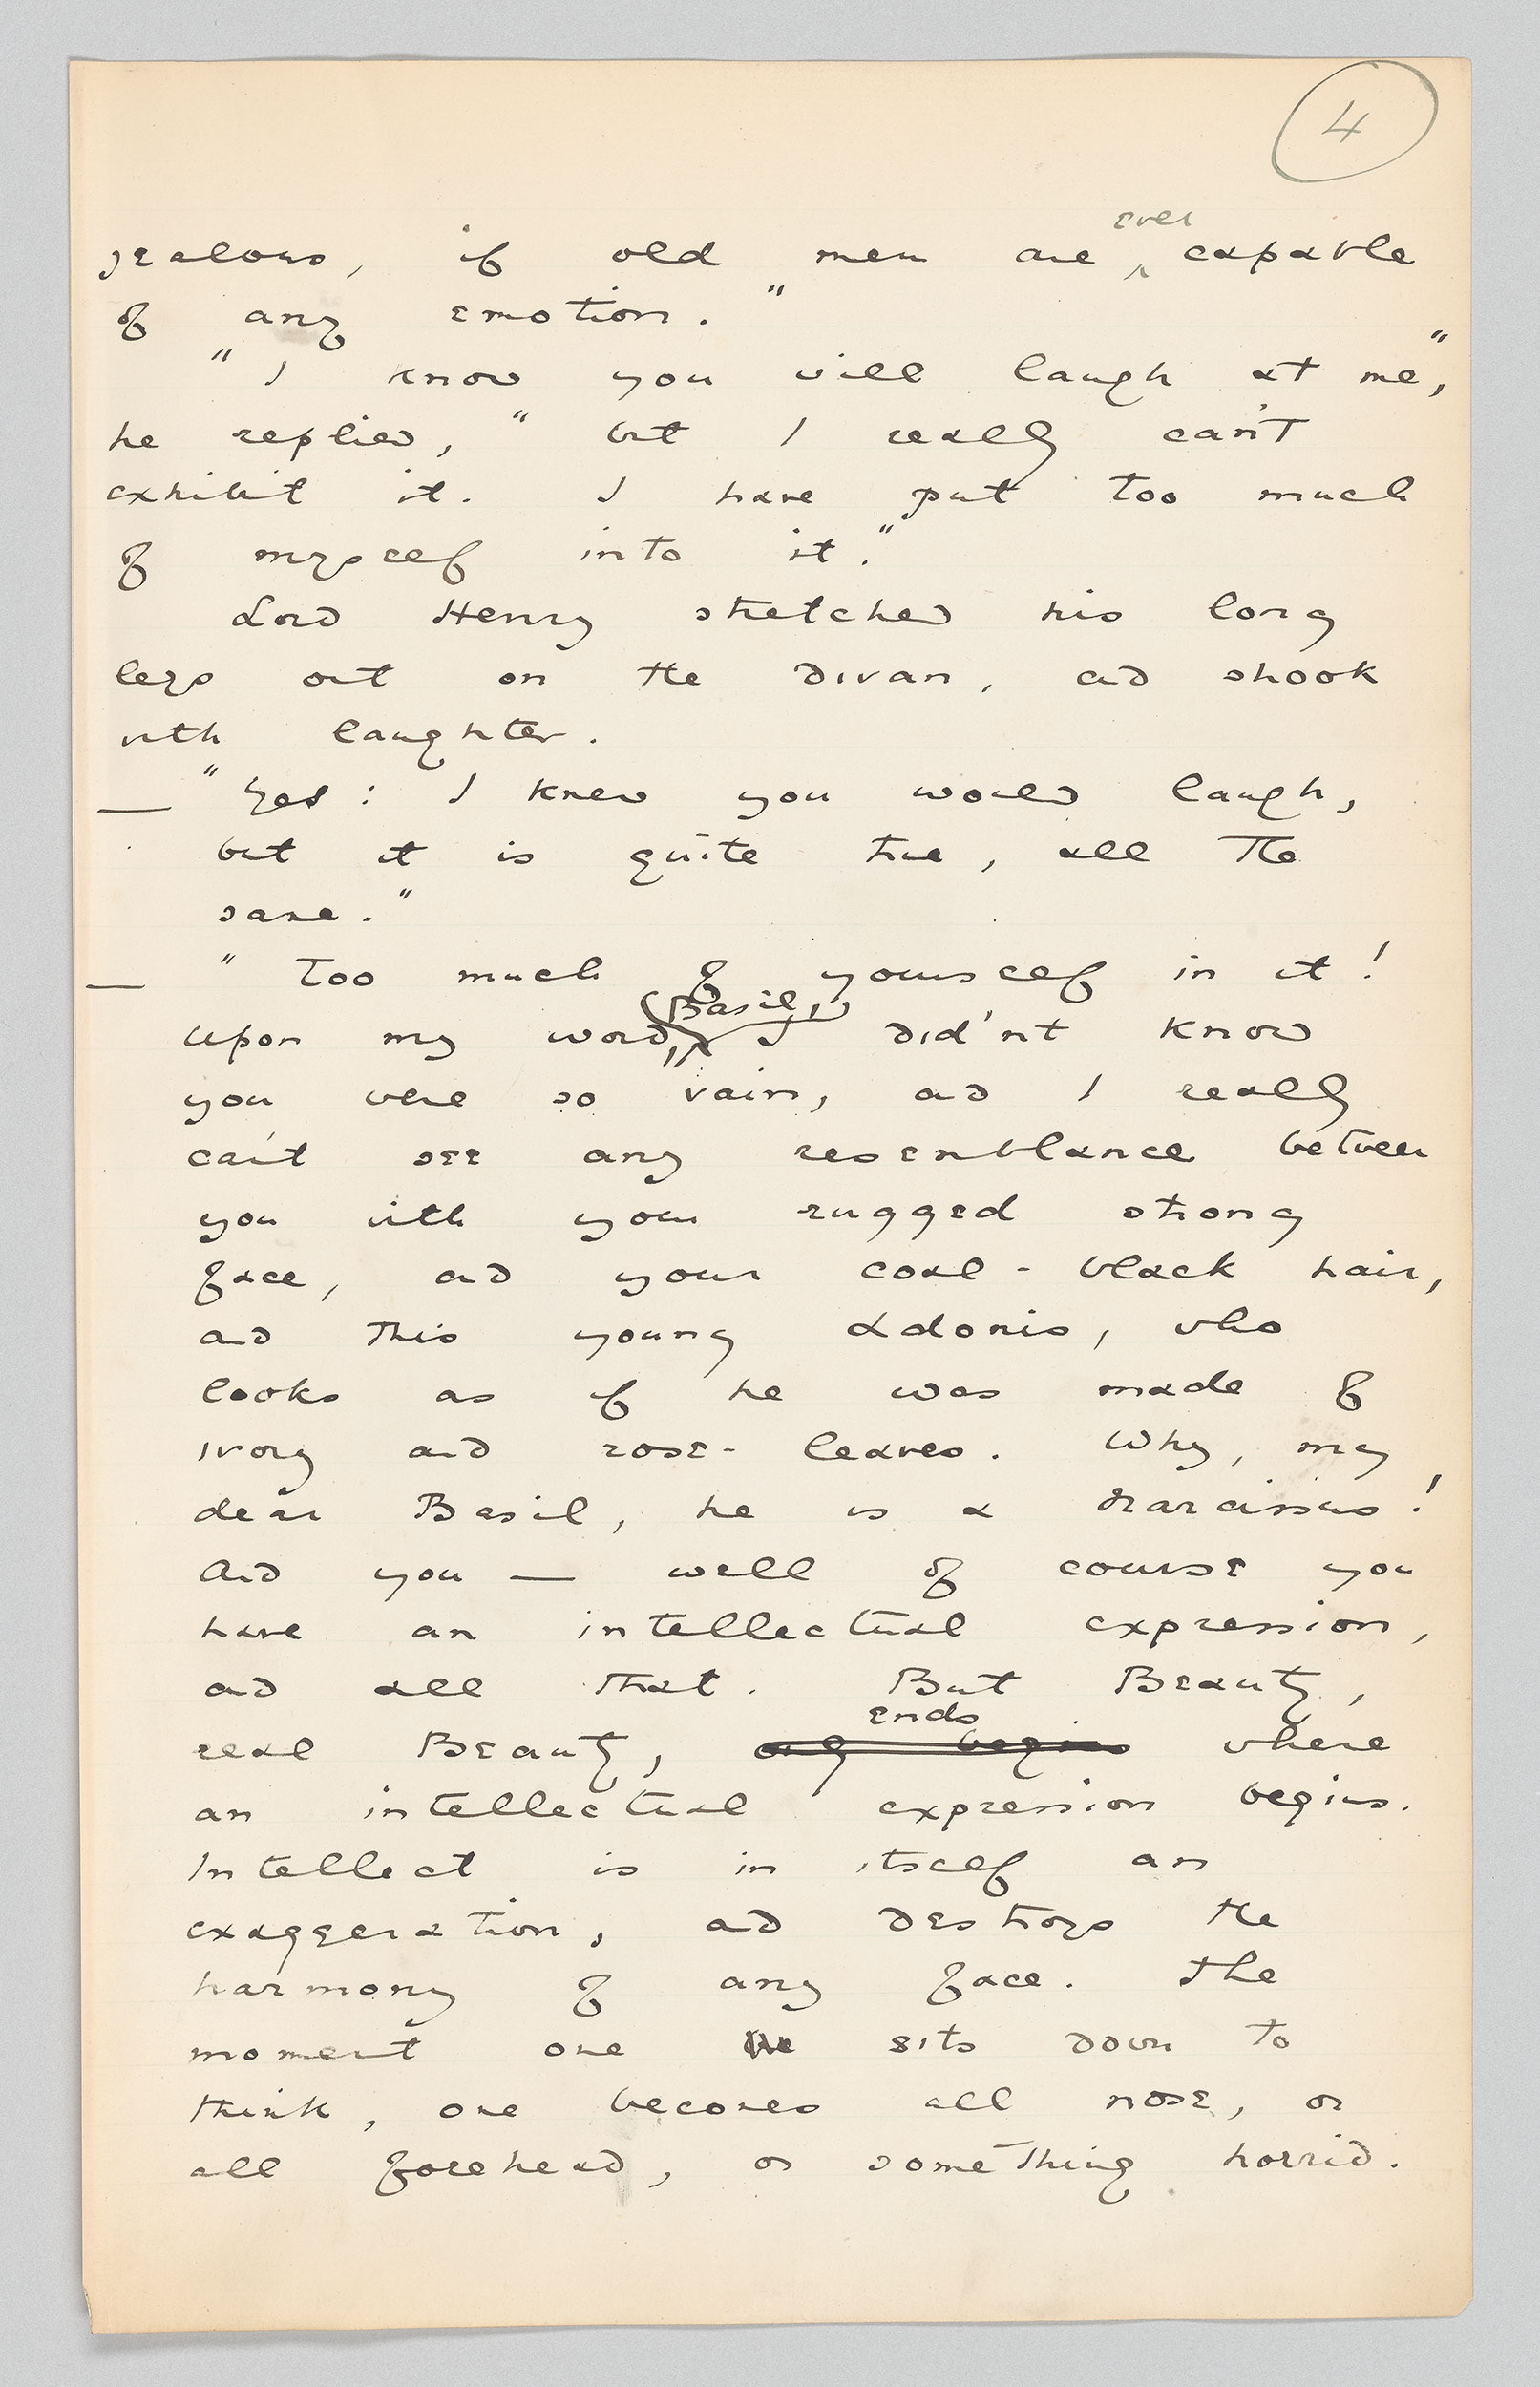 4
jealous, if old men are ever capable
of any emotion."
"I know you will laugh at me",
he replied, "but I really can't
exhibit it. I have put too much
of myself into it."
Lord Henry stretched his long
legs out on the divan, and shook
with laughter.
— "Yes: I knew you would laugh,
but it is quite true, all the
same."
— "Too much of yourself in it!
Upon my word, Basil, I did'nt know
you were so vain, and I really
can't see any resemblance between
you with your rugged strong
face, and your coal-black hair,
and this young Adonis, who
looks as if he was made of
ivory and rose-leaves. Why, my
dear Basil, he is a Narcissus!
And you — well of course you
have an intellectual expression,
and all that. But Beauty,
ends
real Beauty, only begins where
an intellectual expression begins.
Intellect is in itself an
exaggeration, and destroys the
harmony of any face. The
moment one sits down to
think, one becomes all nose, or
all forehead, or something horrid.